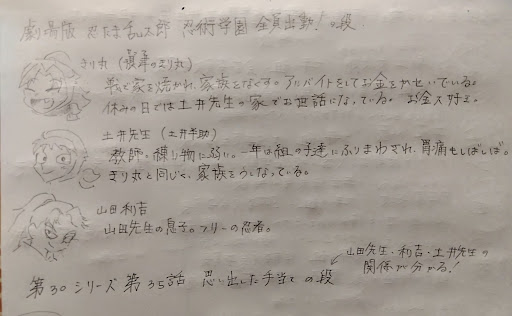 劇場版 忍たま乱太郎 忍術学園 全員出動!の段
きり丸 (摂津のきり丸)
戦で家を焼かれ、家族をなくす。アルバイトをしてお金をかせいでいる。
休みの日では土井先生の家でお世話になっている。お金大好き。
土井先生 (土井半助)
教師。練り物に弱い。一年は組の子達にふりまわされ、胃痛もしばしば。
きり丸と同じく、家族をうしなっている。
山田利吉
山田先生の息子。フリーの忍者。
山田先生・利吉・土井先生の
関係が分かる!
第30シリーズ 第35話 思い出した手当ての段